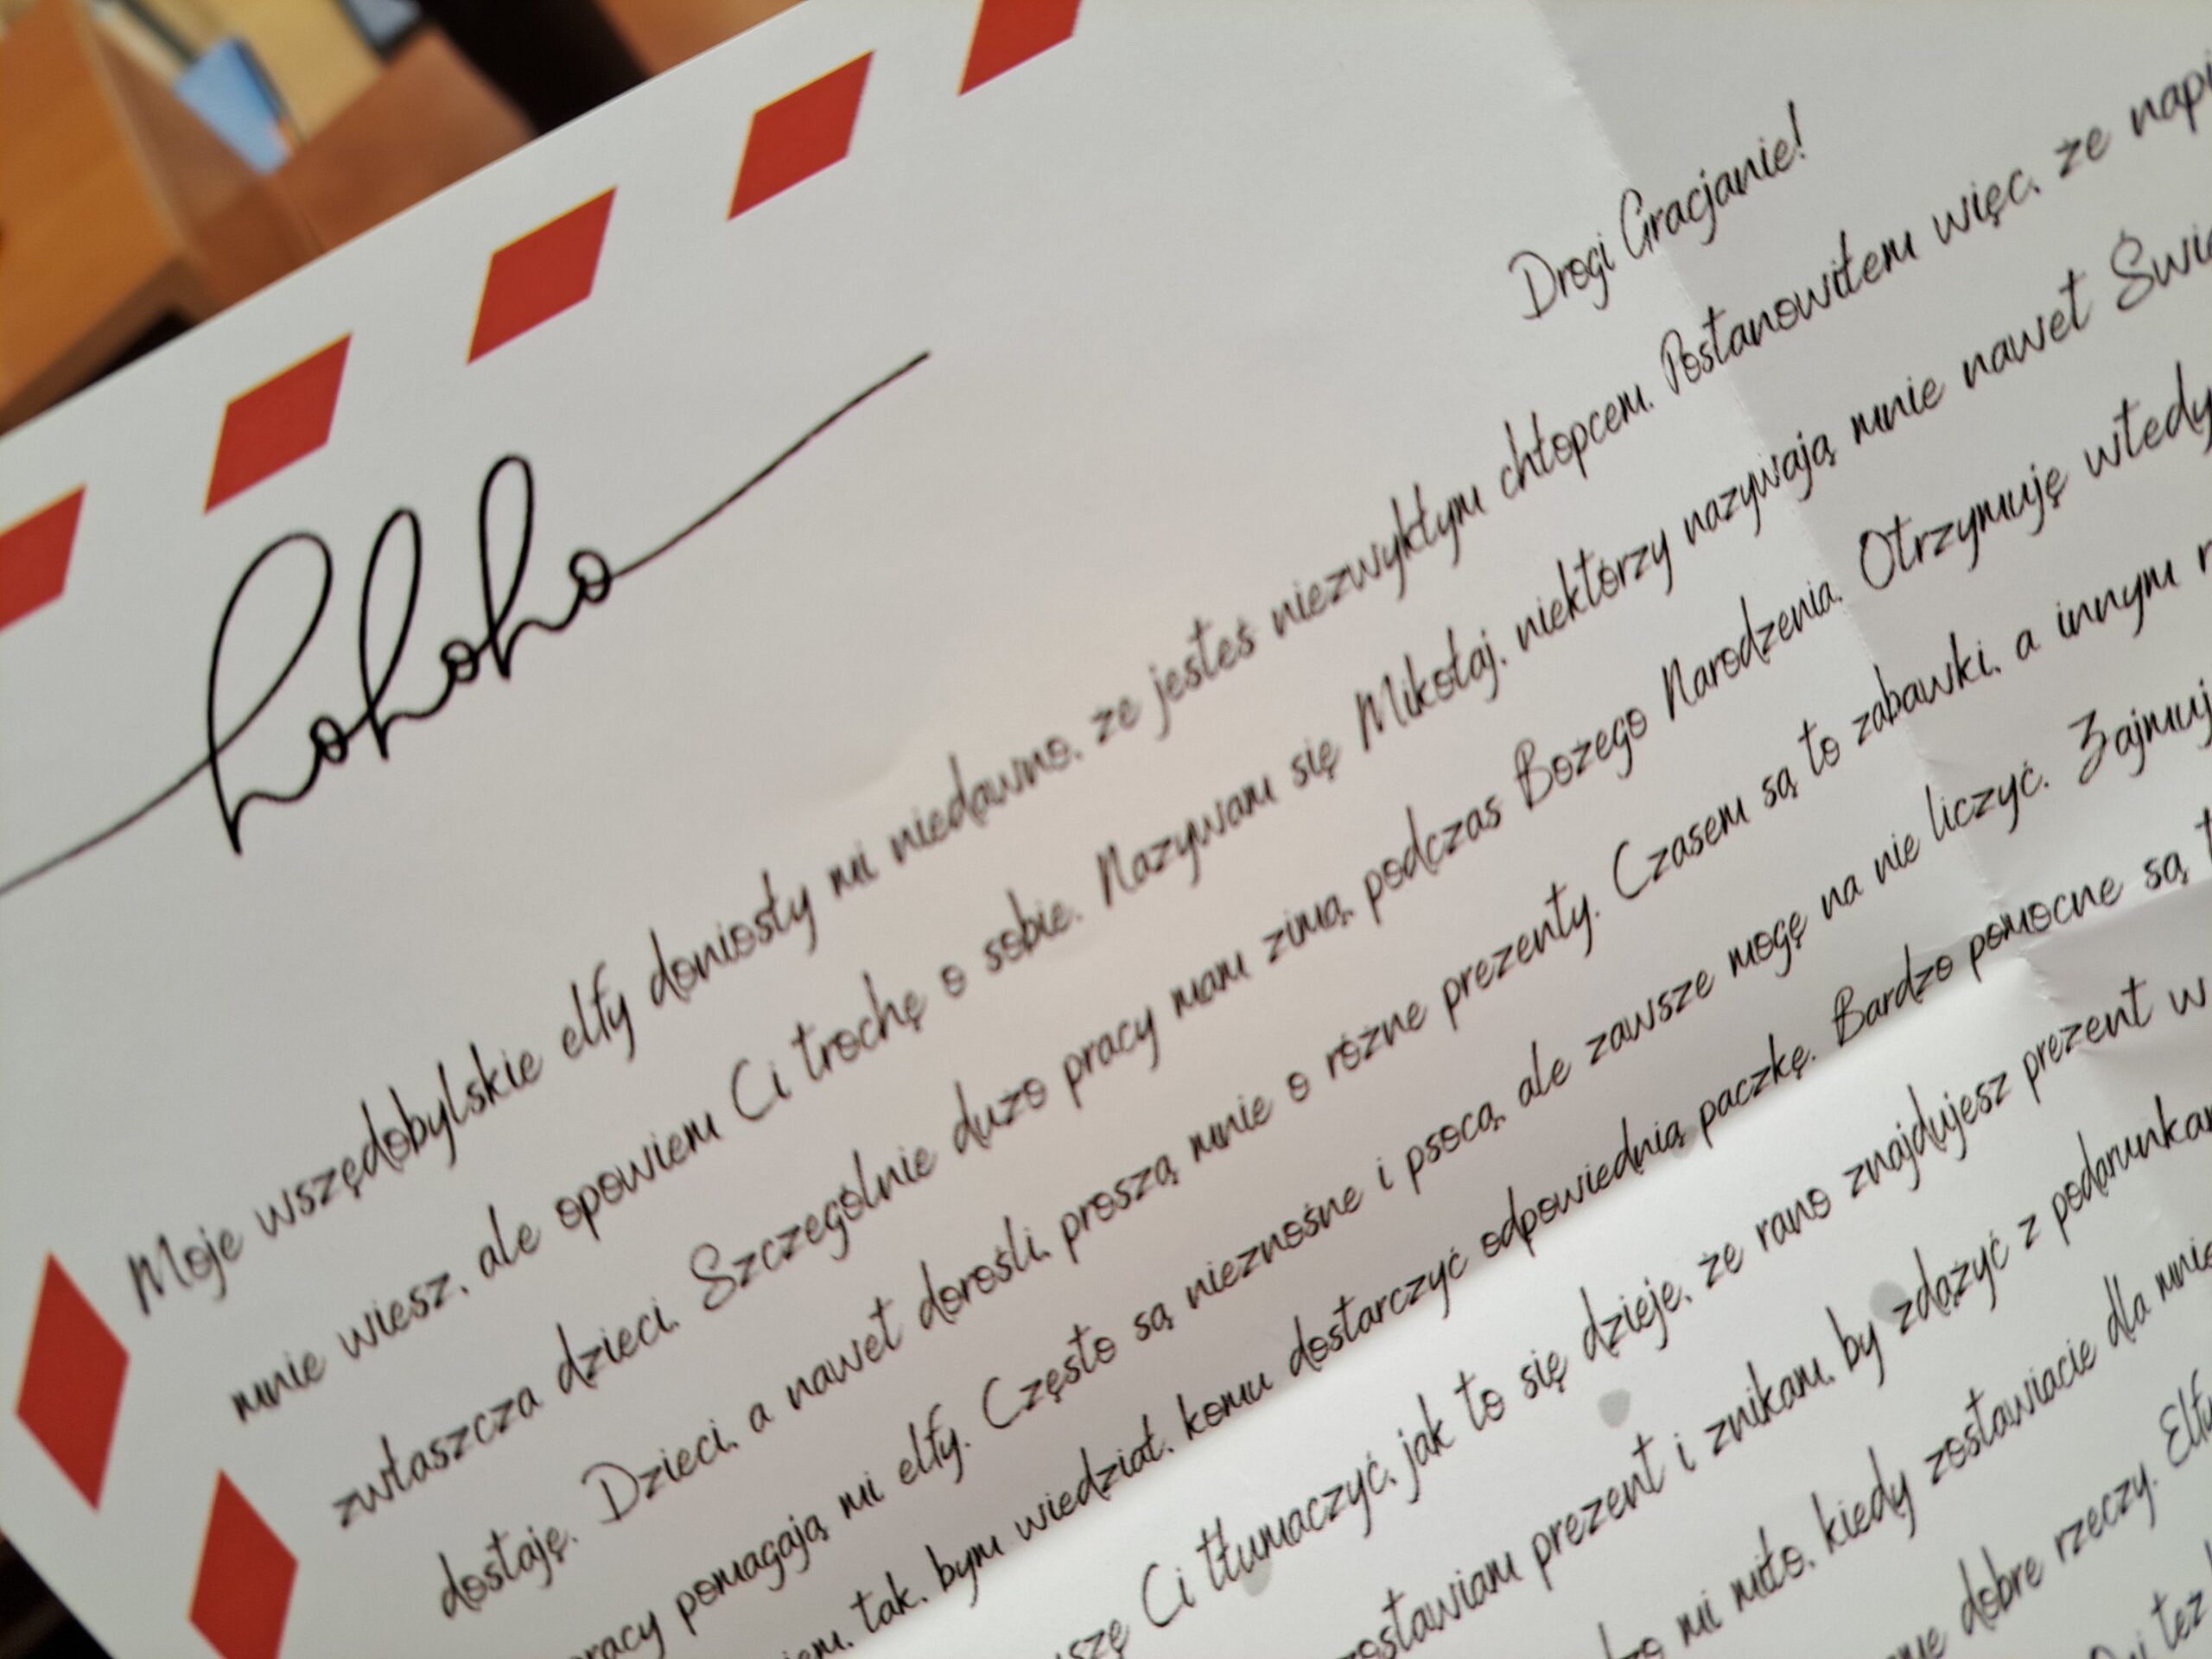 hohoho
Drogi Gracjanie!
Moje wszędobylskie elfy doniosły mi niedawno, że jesteś niezwykłym chłopcem. Postanowiłem więc, że
mnie wiesz, ale opowiem Ci trochę o sobie. Nazywam się Mikołaj, niektórzy nazywają mnie nawet
zwłaszcza dzieci. Szczególnie dużo pracy mam zimą, podczas Bożego Narodzenia. Otrzymuję wtedy
dostaję. Dzieci, a nawet dorośli, proszą mnie o różne prezenty. Czasem są to zabawki, a innym
pracy pomagają mi elfy. Często są nieznośne i psocą, ale zawsze mogę na nie liczyć.
tak, bym wiedział, komu dostarczyć odpowiednią paczkę. Bardzo pomocne są
Ci tłumaczyć, jak to się dzieje, że rano znajdujesz prezent w
prezent i znikam, by zdążyć z
mi miło, kiedy zostawiacie dla
dobre rzeczy.
też